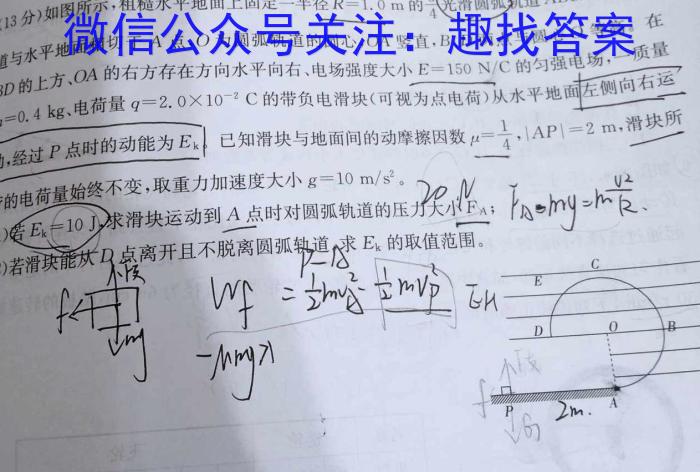 (13分)如图所示,粗糙水平地面上固定一半径R=1.0 m的 3/4 光滑圆弧轨道
微信公众号关注:趣找答案
道与水平地面
BD的上方、OA的右方存在方向水平向右、电场强度大小E=150 N/C的匀强电场,一质量
=0.4 kg、电荷量q=2.0×10⁻² C的带负电滑块(可视为点电荷)从水平地面左侧向右运
动,经过P点时的动能为Eₖ。已知滑块与地面间的动摩擦因数μ=1/4,|AP|=2 m,滑块所
的电荷量始终不变,取重力加速度大小g=10 m/s²。
20N
)若Eₖ=10 J,求滑块运动到A点时对圆弧轨道的压力大小F_A;
)若滑块能从D点离开且不脱离圆弧轨道,求Eₖ的取值范围。
P-A
Wf = ½mv² - ½mv_P²
-μmgx
f
mg
E
C
D
O
B
P
2m.
A